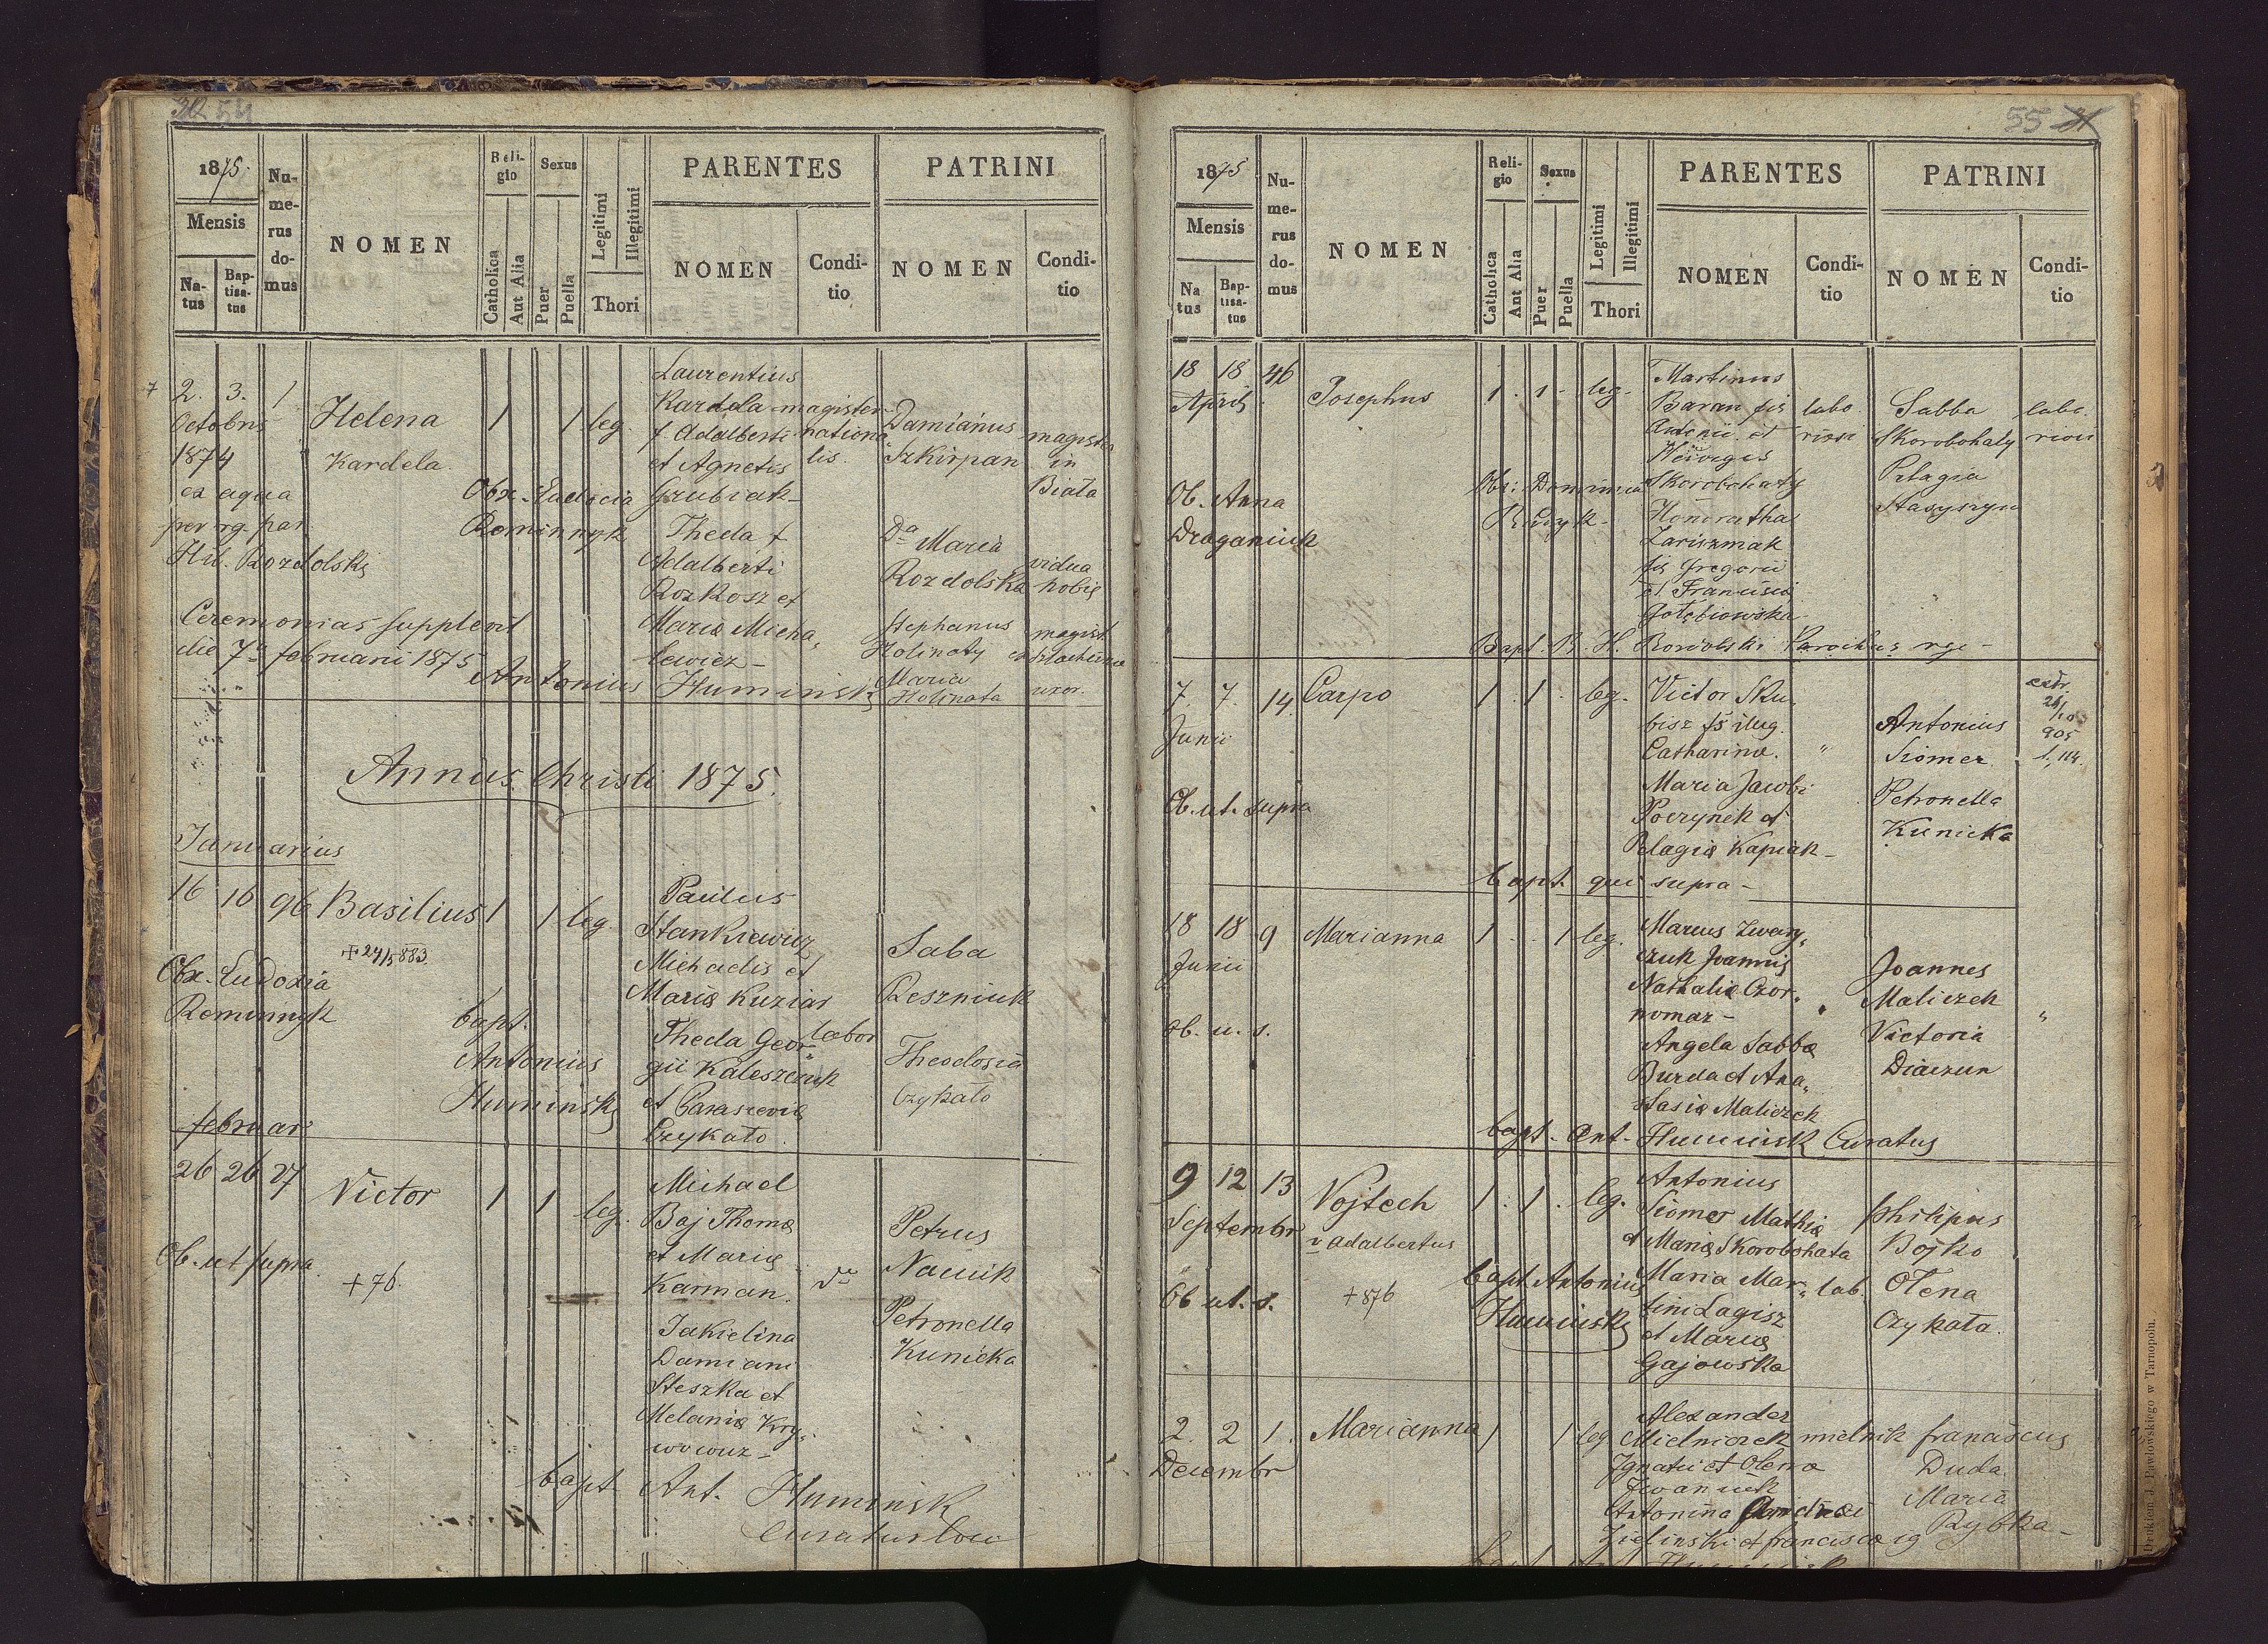 54
1875.
Mensis
Natus
Baptisatus
Numerus domus
NOMEN
Religio
Catholica
Aut Alia
Sexus
Puer
Puella
Legitimi
Illegitimi
Thori
PARENTES
NOMEN
Conditio
PATRINI
NOMEN
Conditio
2. 3. 1
Octobris
1874
ex aqua
per rg. par.
Hil. Rozdolski
Ceremonias supplevit
die 7a februarii 1875
Helena
Kardela
1 1 leg.
Obx. Eudocia
Reminnyk
Antonius Huminski
Laurentius
Kardela
f. Adalberti
et Agnetis
Grubiak
Theda f
Adalberti
Rozkosz et
Mariæ Micha„
lewicz
magister
nationa
lis.
Damianus
Szkirpan
magister
in
Biała
Da Maria
Rozdolska
vidua
nobil
Stephanus
Holinaty
magist.
Maria
Holinata
uxor.
Annus Christi 1875.
Januarius
16 16 96 Basilius 1 1 leg
+ 24/5 883.
Obx. Eudoxia
Reminnyk
bapt.
Antonius
Huminski
Paulus
Stankiewicz
Michaelis et
Mariæ Kuziar
Theda Geor„
gii Kaleszczuk
et Parascevia
Czykało
labor
Saba
Reszniuk
Theodosia
Czykało
februar
26 26 27
Victor 1 1 leg.
Ob. ut supra
+ 76.
Michael
Baj Thomæ
et Mariæ
Karman.
Jakielina
Damiani
Steszka et
Melaniæ Kry„
wowicz
Petrus
Nacuik
Petronella
Kunicka
bapt Ant. Huminsk
55
1875
Mensis
Natus
Baptisatus
Numerus domus
NOMEN
Religio
Catholica
Aut Alia
Sexus
Puer
Puella
Legitimi
Illegitimi
Thori
PARENTES
NOMEN
Conditio
PATRINI
NOMEN
Conditio
18 18 46
April
Josephus 1. 1. leg.
Ob. Anna
Draganiuk
Martinus
Baran fis
Antonii et
Hedvigis
Skorobohaty
Honoratha
Zariszmak
fis Gregorii
et Francisca
Gołębiowska
labo.
riosi
Sabba
Skorobohaty
Pelagia
Stasyszyn
labo.
riosi
Bapt. R. H. Rozdolski Parochus rg.
7. 7. 14. Carpo 1. 1. leg.
Junii
Ob. ut. supra
Victor Sku„
bisz fs illeg.
Catharinæ.
Maria Jacobi
Poczynek et
Pelagiæ Kapiak
Antonius
Siomer
Petronella
Kunicka
extr.
24/10
905
l. 114.
bapt. qui supra
18 18 9 Marianna 1 . . 1 leg.
Junii
ob. u. s.
Marcus Zwary„
czuk Joannis
Nathaliæ Czor„
nomaz
Angela Sabbæ
Burda et Ana„
stasiæ Maliczek
Joannes
Maliczek
Victoria
Diaczun
bapt. Ant. Huminsk Curatus
9 12 13
Septembr
Vojtech 1. 1. leg.
v Adalbertus
Ob ut. s.
+ 876
bapt Antonius
Huminski
Antonius
Siomer Mathiæ
et Mariæ Skorobohata
Maria Mar„
tini Lagisz
et Mariæ
Gajowska
lab.
Philipus
Bojko
Olena
Czykała.
2. 2 1. Marianna 1 1 leg
Decembr
Alexander
Mielniczek
Ignatii et Olenæ
Iwaniuk
Antonina Andreæ
Zielinski et Franciscæ
mielnik
Franciscus
Duda
Maria
Rybka
Drukiem J. Pawłowskiego w Tarnopolu.